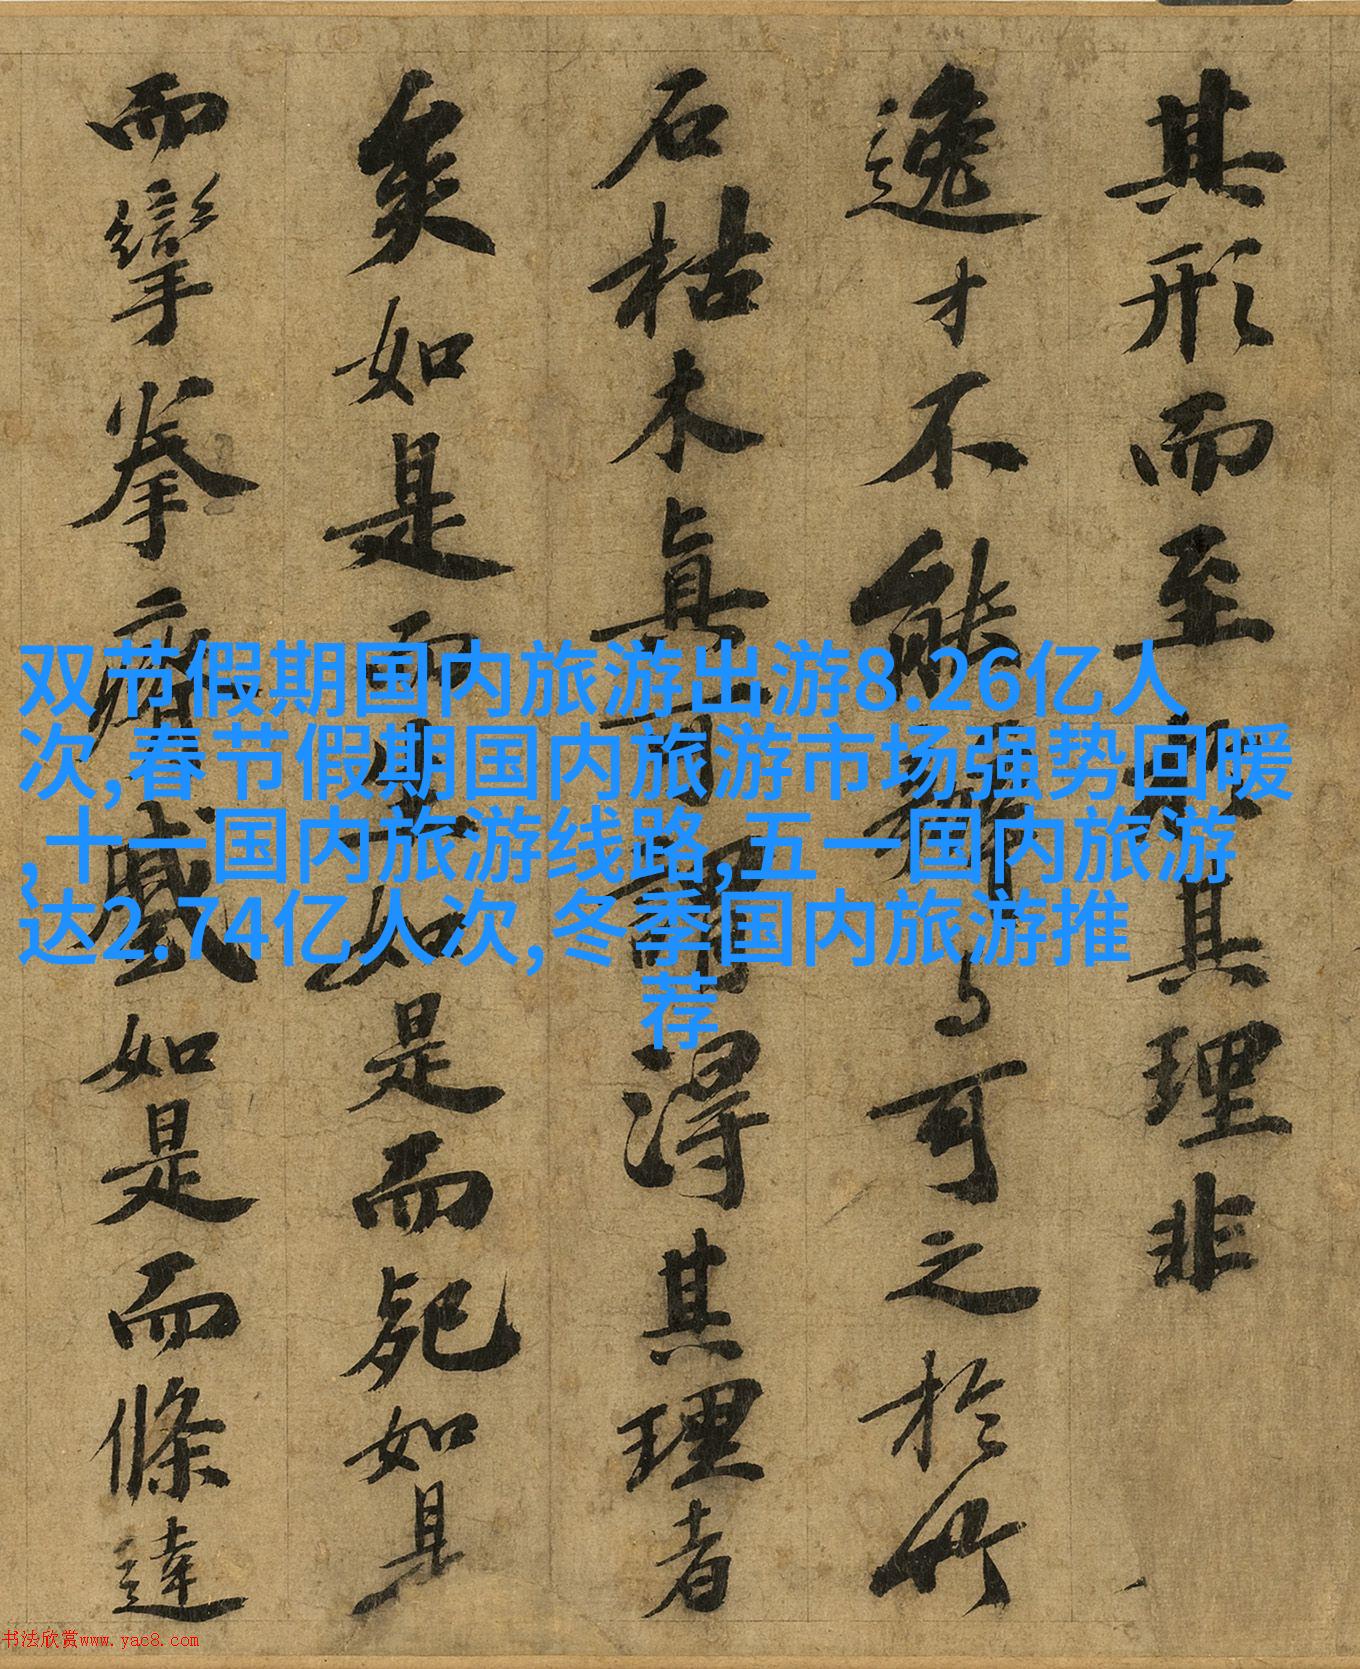 其形而至於其理非
逸才不能辨与可之於竹
石枯木真可謂得其理者
矣如是而生如是而死如是
而攣拳瘠蹙如是而條達
双节假期国内旅游出游8.26亿人
次,春节假期国内旅游市场强势回暖
,十一国内旅游线路,五一国内旅游
达2.74亿人次,冬季国内旅游推
荐
书法欣赏www.yac8.com